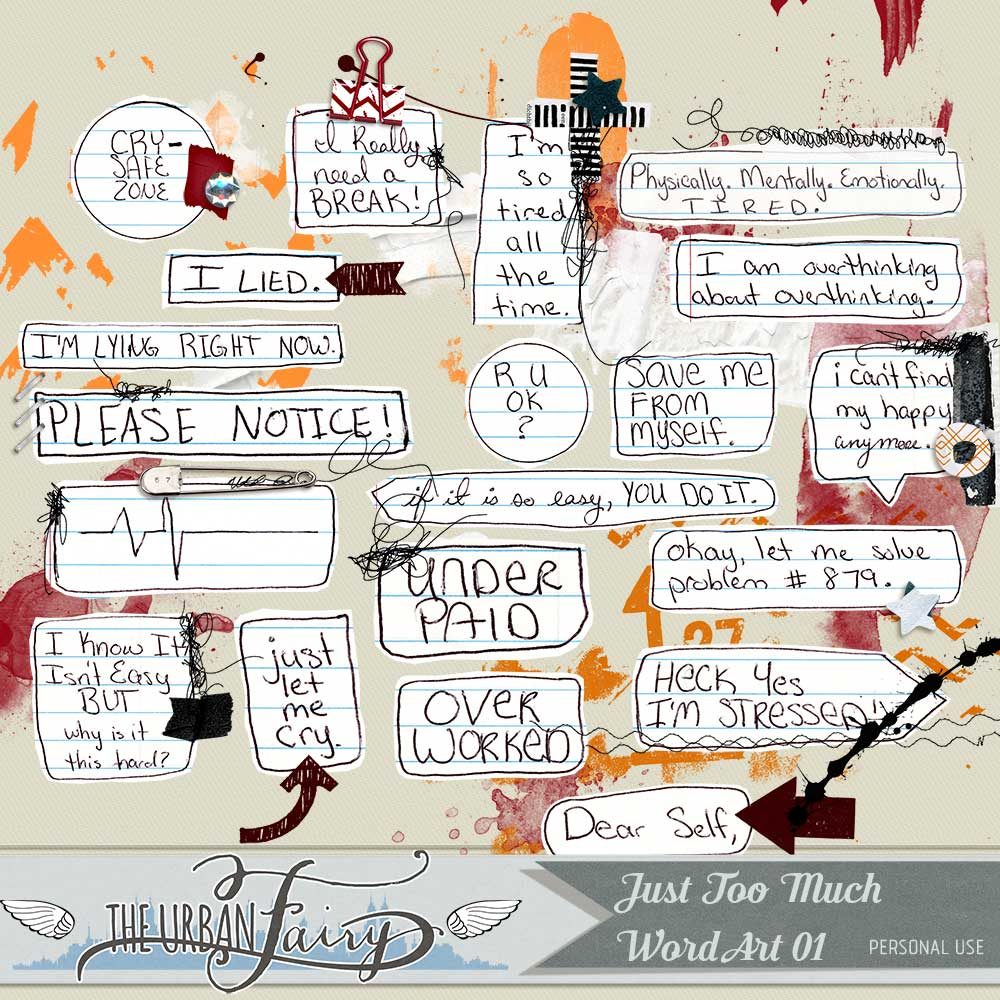 CRY-
SAFE
ZONE
I Really
need a
BREAK!
I'm
so
tired
all
the
time.
Physically. Mentally. Emotionally.
TIRED.
I LIED.
I am overthinking
about overthinking.
I'M LYING RIGHT NOW.
PLEASE NOTICE!
R U
OK
?
Save me
FROM
myself.
i can't find
my happy
anymore.
if it is so easy, YOU DO IT.
UNDER
PAID
okay, let me solve
problem # 879.
I Know It
Isn't Easy
BUT
why is it
this hard?
just
let
me
cry.
OVER
WORKED
HECK Yes
I'M STRESSED!
27
Dear Self,
THE URBAN Fairy
Just Too Much
Word Art 01
PERSONAL USE